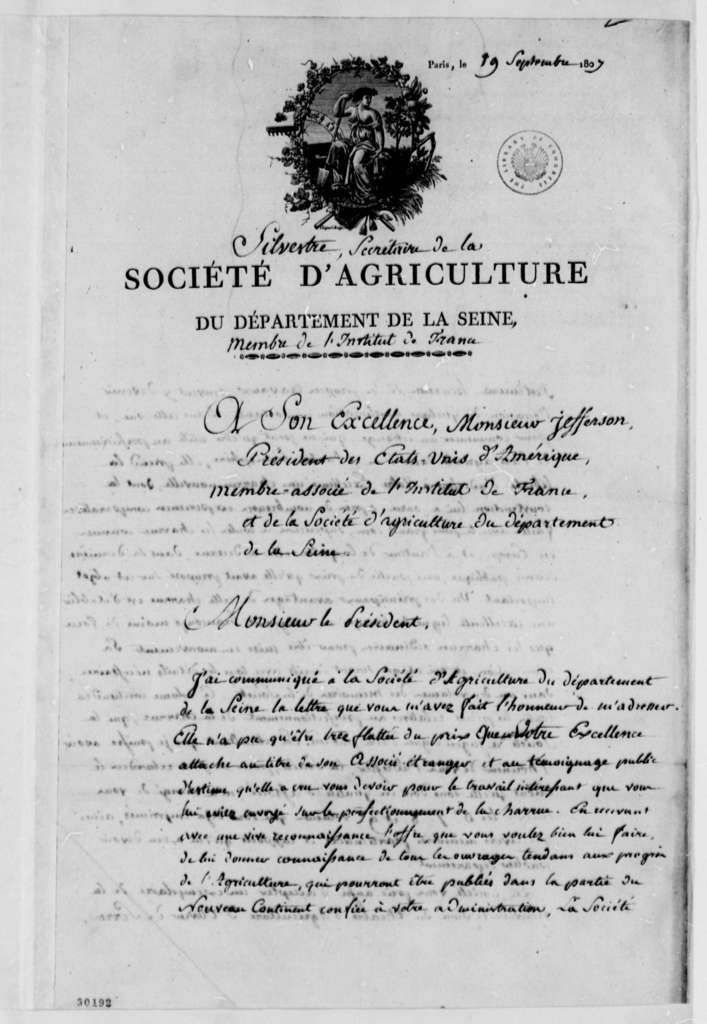 Paris, le 19 Septembre 1807
THE LIBRARY OF CONGRESS
Silvestre, Secrétaire de la
SOCIÉTÉ D'AGRICULTURE
DU DÉPARTEMENT DE LA SEINE,
Membre de l'Institut de France
A Son Excellence, Monsieur Jefferson,
Président des Etats-Unis d'Amérrique,
membre associé de l'Institut de France,
et de la Société d'agriculture du département
de la Seine.
Monsieur le Président,
J'ai communiqué à la Société d'Agriculture du département
de la Seine la lettre que vous m'avez fait l'honneur de m'adresser.
Elle n'a pu qu'être trez flattée du prix que Votre Excellence
attache au titre de son Associé étranger et au témoignage public
d'estime qu'elle a cru vous devoir pour le travail intéressant que vous
lui aviez envoyé sur le perfectionnement de la charrue. En recevant
avec une vive reconnaissance l'offre que vous voulez bien lui faire,
de lui donner connaissance de tous les ouvrages tendans aux progrès
de l'Agriculture, qui pourront être publiés dans la partie du
Nouveau Continent confiée à votre administration, La Société
30192